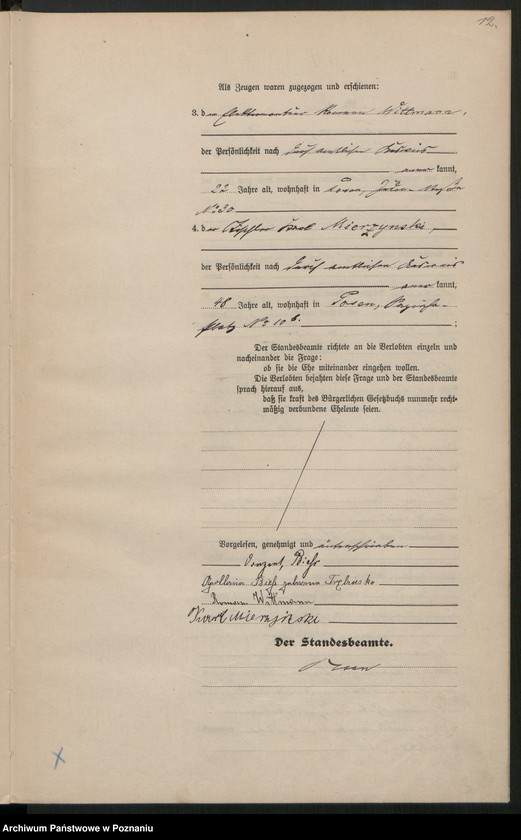 12.
Als Zeugen waren zugezogen und erschienen:
3. der Elektromonteur Roman Wittmann,
der Persönlichkeit nach durch amtlichen Ausweis
anerkannt,
22 Jahre alt, wohnhaft in Posen,
No 30
4. der Tischler Karl Mierzynski,
der Persönlichkeit nach durch amtlichen Ausweis
anerkannt,
48 Jahre alt, wohnhaft in Posen,
platz No 10 b. ;
Der Standesbeamte richtete an die Verlobten einzeln und
nacheinander die Frage:
ob sie die Ehe miteinander eingehen wollen.
Die Verlobten bejahten diese Frage und der Standesbeamte
sprach hierauf aus,
daß sie kraft des Bürgerlichen Gesetzbuchs nunmehr recht-
mäßig verbundene Eheleute seien.
Vorgelesen, genehmigt und unterschrieben
Vinzent
Apollonia geborene
Roman Wittmann
Karl Mierzyński
Der Standesbeamte.
Archiwum Państwowe w Poznaniu